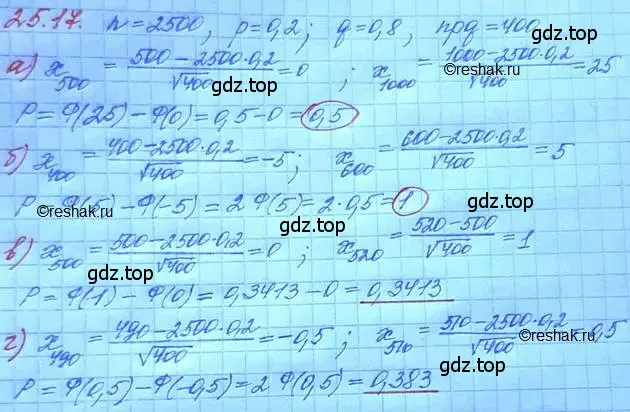 25.17. n = 2500, p = 0,2; q = 0,8, npq = 400
а) x₅₀₀ = (500 − 2500·0,2)/√400 = 0; x₁₀₀₀ = (1000 − 2500·0,2)/√400 = 25
gdz.top gdz.top ©reshak.ru
P = Ф(25) − Ф(0) = 0,5 − 0 = 0,5
б) x₄₀₀ = (400 − 2500·0,2)/√400 = −5; x₆₀₀ = (600 − 2500·0,2)/√400 = 5
gdz.top ©reshak.ru gdz.top
P = Ф(5) − Ф(−5) = 2Ф(5) = 2·0,5 = 1
в) x₅₀₀ = (500 − 2500·0,2)/√400 = 0; x₅₂₀ = (520 − 500)/√400 = 1
gdz.top gdz.top
P = Ф(1) − Ф(0) = 0,3413 − 0 = 0,3413
г) x₄₉₀ = (490 − 2500·0,2)/√400 = −0,5; x₅₁₀ = (510 − 2500·0,2)/√400 = 0,5
gdz.top ©reshak.ru gdz.top
P = Ф(0,5) − Ф(−0,5) = 2Ф(0,5) = 0,383